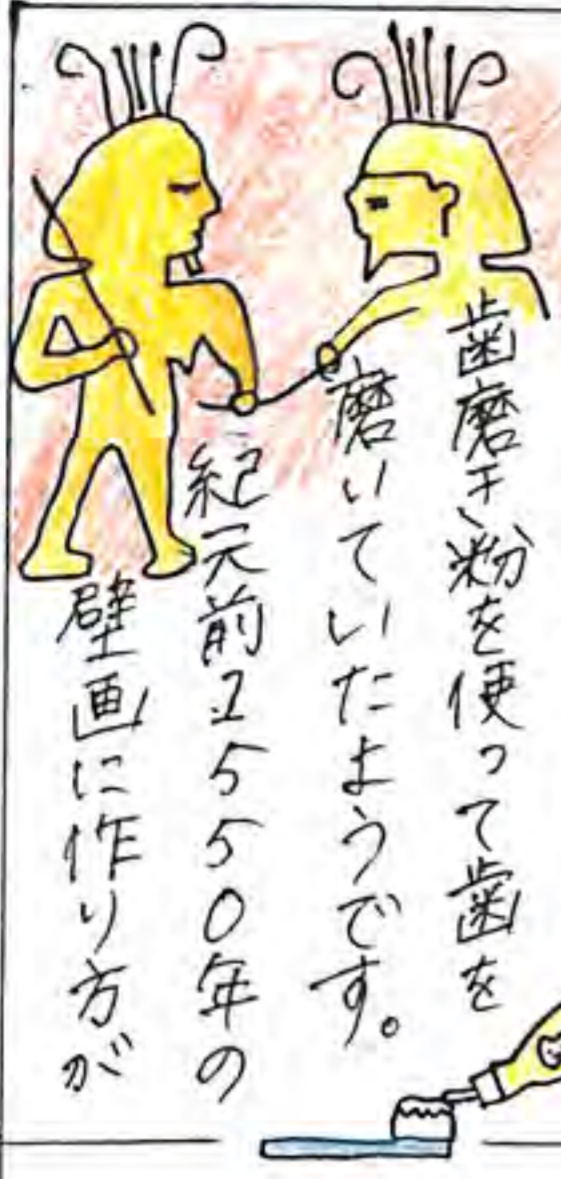 歯磨き粉を使って歯を
磨いていたようです。
紀元前1550年の
壁画に作り方が